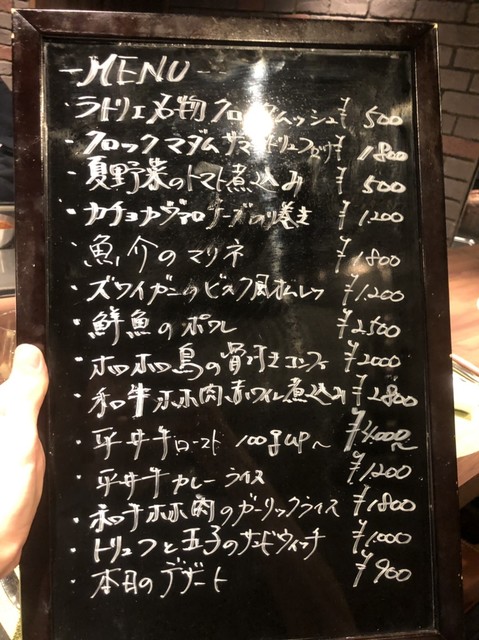 -MENU-
・ラトリエ名物クロックムッシュ ¥500
・クロックマダム サマートリュフ ¥1800
・夏野菜のトマト煮込み ¥500
・カチョカヴァロチーズの ¥1,200
・魚介のマリネ ¥1800
・ズワイガニのビスク風オムレツ ¥1,200
・鮮魚のポワレ ¥2500
・ホロホロ鳥の骨付きコンフィ ¥2000
・和牛ホホ肉赤ワイン煮込み ¥2800
・平井牛ロースト 100gUP~ ¥4000~
・平井牛カレーライス ¥1,200
・和牛ホホ肉のガーリックライス ¥1800
・トリュフと玉子のサンドウィッチ ¥1,000
・本日のデザート ¥900